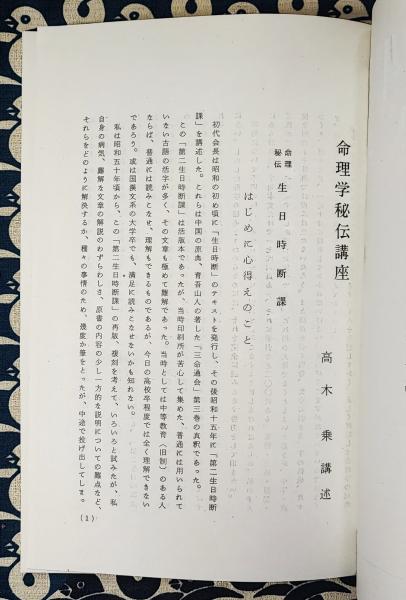 命理学秘伝講座
高木乗講述
命理
秘伝
生日時断課
はじめに心得えのこと
初代会長は昭和の初め頃に「生日時断」のテキストを発行し、その後昭和十五年に「第二生日時断
課」を講述した。これらは中国の原典、育吾山人の著した「三命通会」第三巻の真釈であった。
この「第二生日時断課」は活版本であったが、当時印刷所が苦心して集めた、普通には用いられて
いない古語の活字が多く、その文章も極めて難解であった。当時としては中等教育(旧制)のある人
ならば、普通には読みこなせ、理解もできるものであるが、今日の高校卒程度では全く理解できない
であろう。或は国漢文系の大学卒でも、満足に読みこなせないかも知れない。
私は昭和五十年頃から、この「第二生日時断課」の再版、復刻を考えて、いろいろと試みたが、私
自身の病気、難解な文章の解説のわずらわしさ、原書の内容の少し一方的な説明についての難点など、
それらをどのように解決するか、種々の事情のため、幾度か筆をとったが、中途で投げ出してしま。
(1)